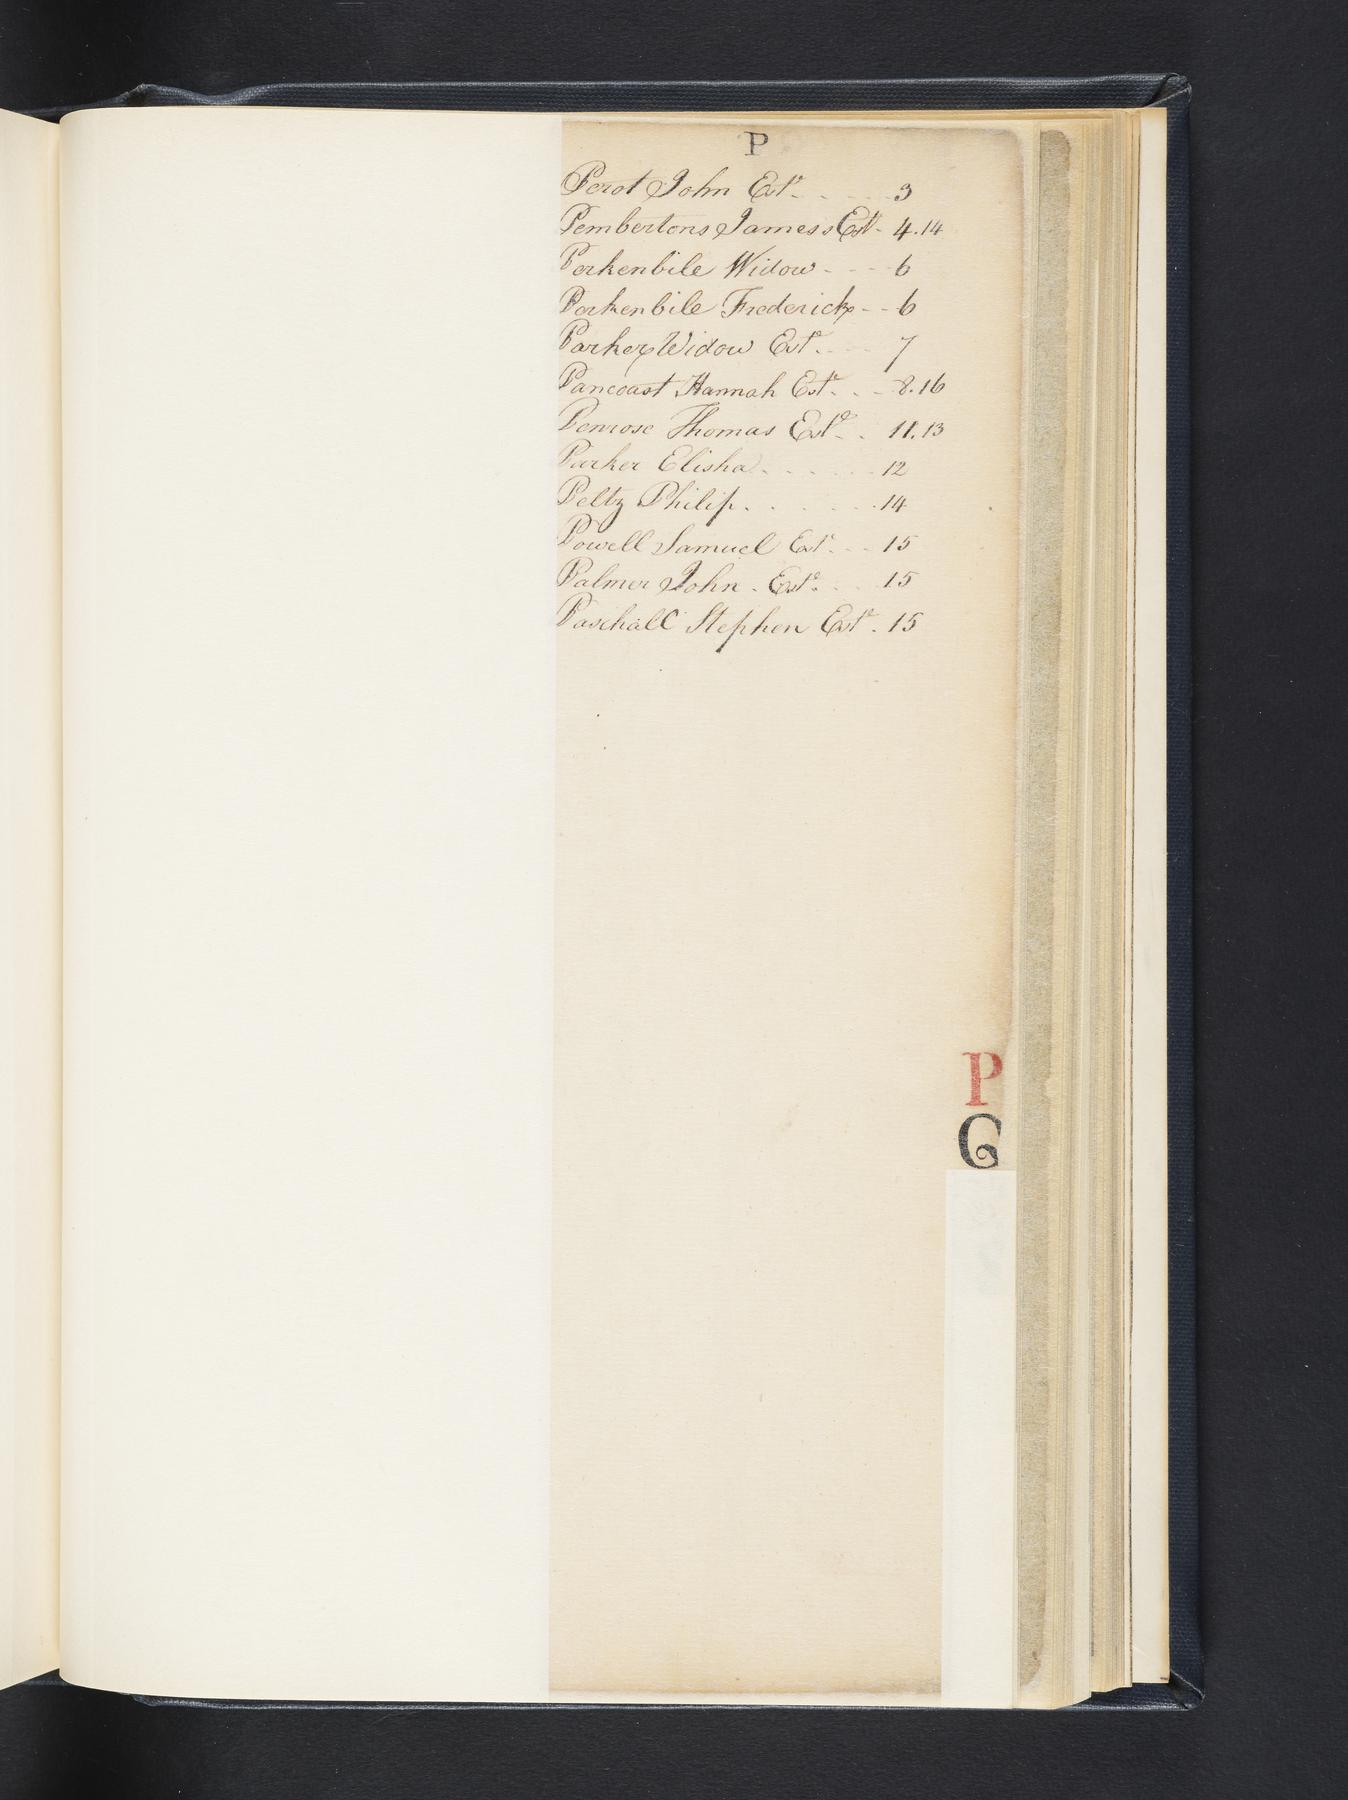 P
Perot John Est.e . . . . . 3
Pembertons James's Est.e - 4.14
Perkenbile Widow - - - - 6
Perkenbile Frederick - - 6
Parker Widow Est.e . - - - 7
Pancoast Hannah Est.e . . - 8.16
Penrose Thomas Est.e - . 11.13
Parker Elisha . . . . . . . 12
Peltz Philip . . . . . . . 14
Powell Samuel Est.e . - - 15
Palmer John . Est.e . . . . 15
Paschall Stephen Est.e . 15
P
Q